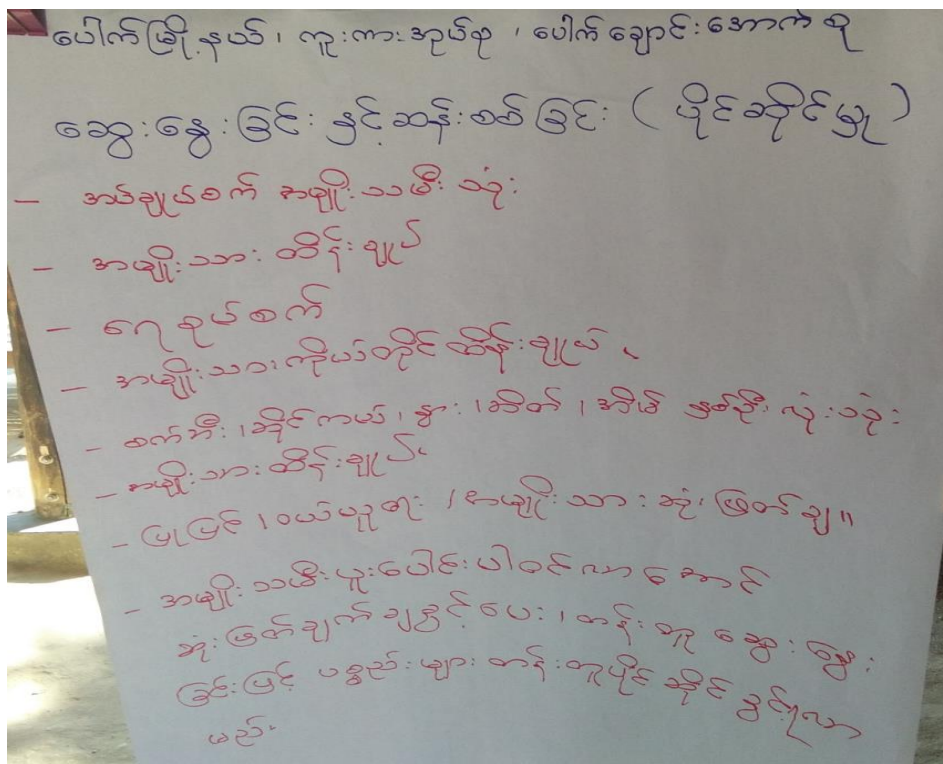 ပေါက်မြို့နယ်၊ ကူးကားအုပ်စု ၊ ပေါက်ချောင်းအောက်စု
ဆွေးနွေးခြင်းနှင့်ဆန်းစစ်ခြင်း ( ပိုင်ဆိုင်မှု )
- အပ်ချုပ်စက် အမျိုးသမီးသုံး
- အမျိုးသားထိန်းချုပ်
- ရေစုပ်စက်
- အမျိုးသားကိုယ်တိုင်ထိန်းချုပ်၊
- စက်ဘီး၊ဆိုင်ကယ်၊နွား၊ဆိတ်၊အိမ် နှစ်ဦးလုံးသုံး
- အမျိုးသားထိန်းချုပ်၊
- ပြုပြင်၊ဝယ်ယူရေး၊အမျိုးသားဆုံးဖြတ်ချ။
- အမျိုးသမီးပူးပေါင်းပါဝင်လာအောင်
ဆုံးဖြတ်ချက်ချခွင့်ပေး၊တန်းတူဆွေးနွေး
ခြင်းဖြင့် ပစ္စည်းများတန်းတူပိုင်ဆိုင်ခွင့်ရလာ
မည်။